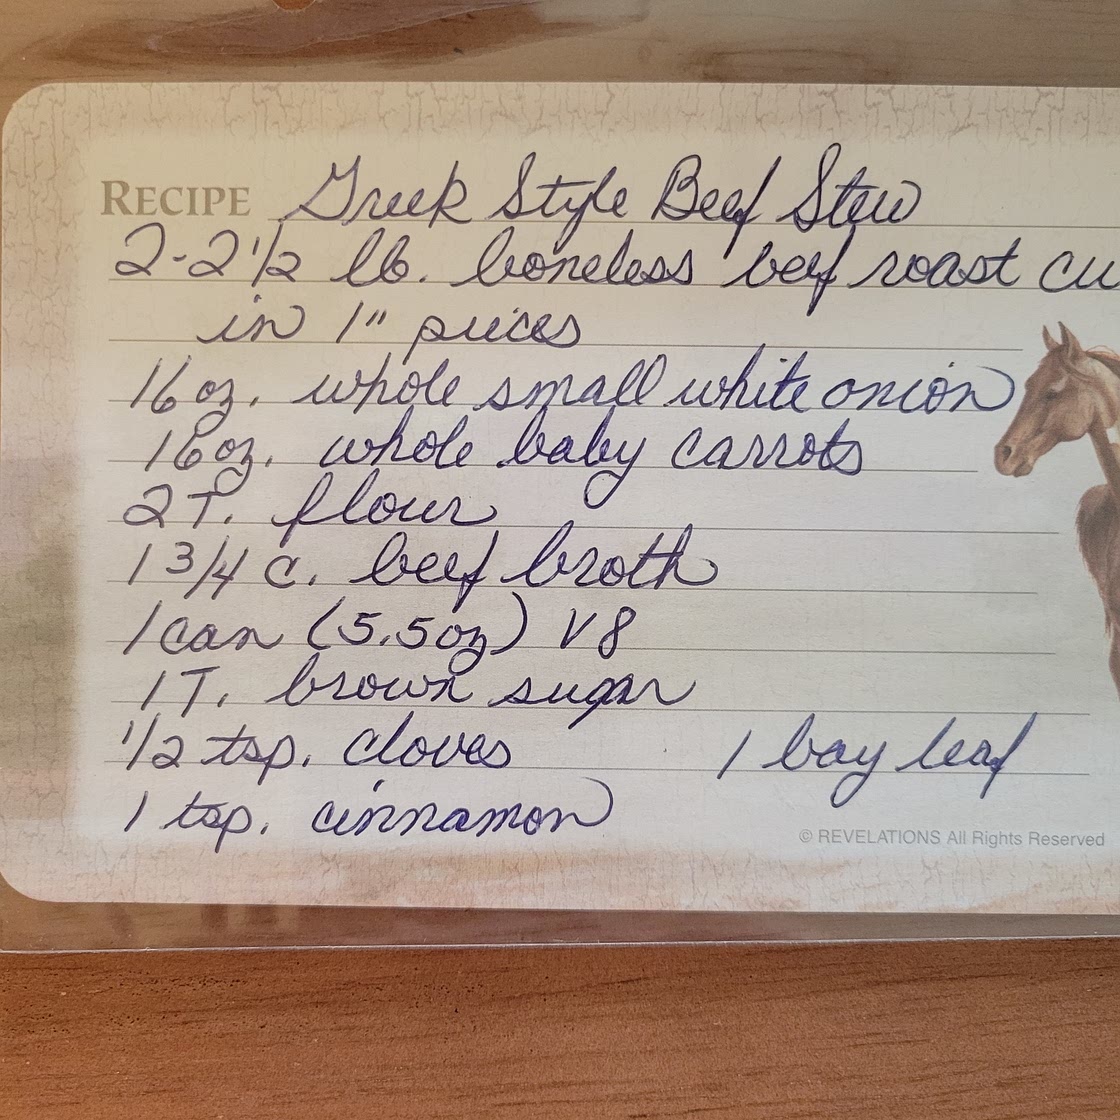 RECIPE Greek Style Beef Stew
2-2 1/2 lb. boneless beef roast cu
in 1" pieces
16 oz. whole small white onion
16 oz. whole baby carrots
2 T. flour
1 3/4 c. beef broth
1 can (5.5oz) V8
1 T. brown sugar
1/2 tsp. cloves 1 bay leaf
1 tsp. cinnamon
© REVELATIONS All Rights Reserved